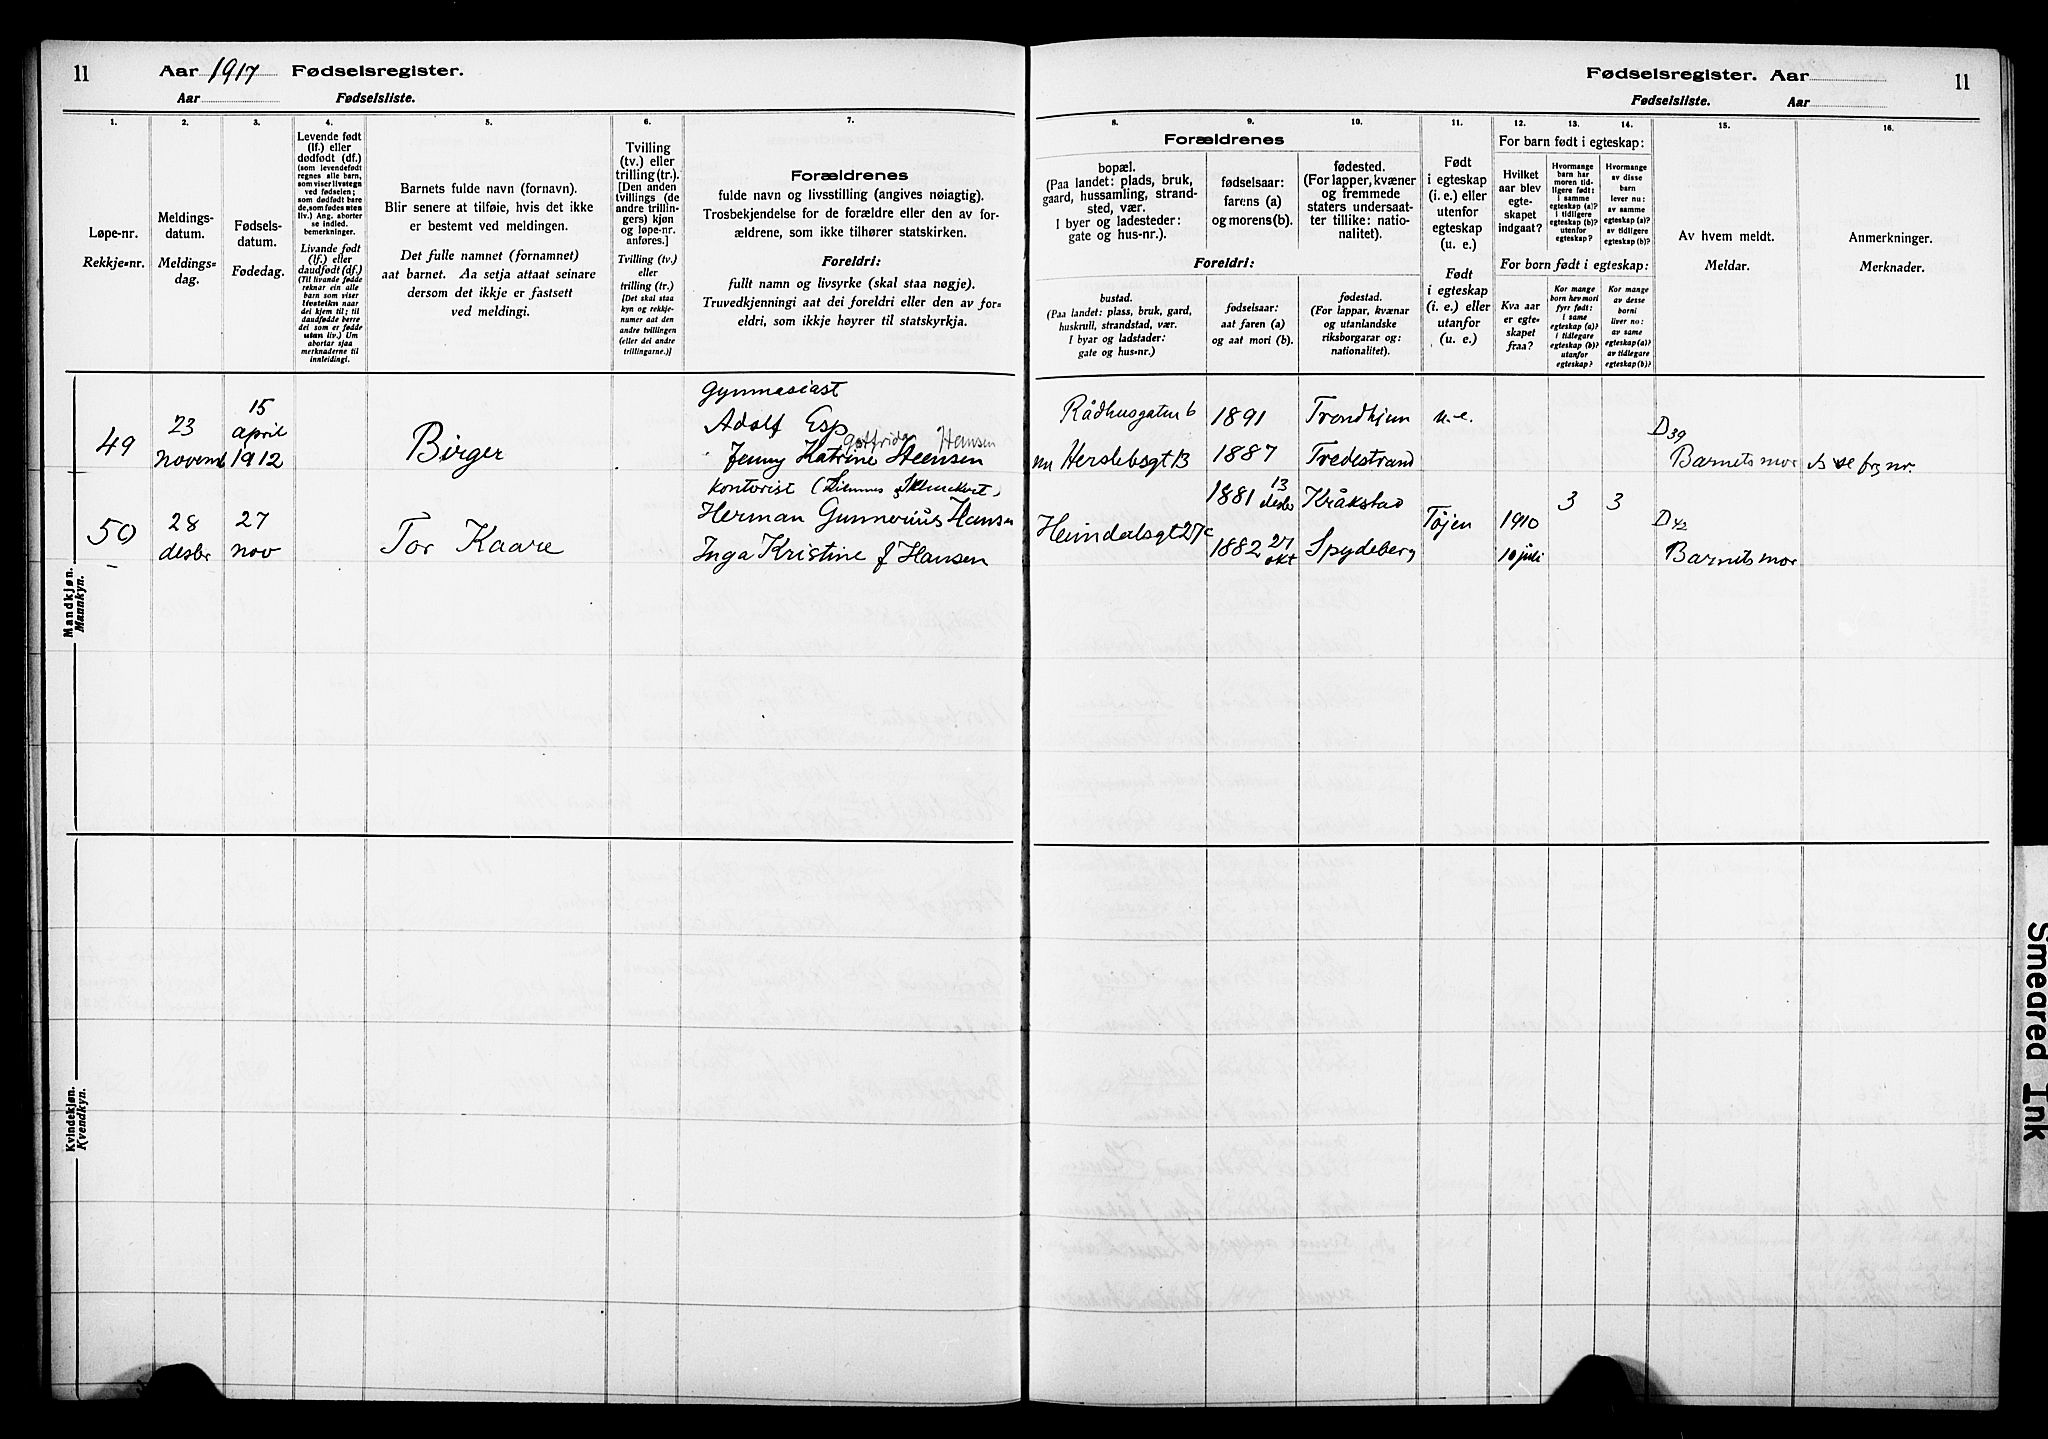 11
Aar 1917 Fødselsregister.
Aar Fødselsliste.
1.
Løpe-nr.
Rekkje=nr.
2.
Meldings-
datum.
Meldings=
dag.
3.
Fødsels-
datum.
Fødedag.
4.
Levende født
(lf.) eller
dødfødt (df.)
(som levendefødt
regnes alle barn,
som viser livstegn
ved fødselen;
som dødfødt bare
de, som fødes uten
liv.) Ang. aborter
se indled.
bemerkninger.
Livande født
(lf.) eller
daudfødt (df.)
(Til livande fødde
reknar ein alle
barn som viser
livsteikn naar
dei kjem til; til
daudfødde berre
dei som er fødde
utan liv.) Um
abortar sjaa
merknaderne til
innleidingi.
5.
Barnets fulde navn (fornavn).
Blir senere at tilføie, hvis det ikke
er bestemt ved meldingen.
Det fulle namnet (fornamnet)
aat barnet. Aa setja attaat seinare
dersom det ikkje er fastsett
ved meldingi.
6.
Tvilling
(tv.) eller
trilling (tr.).
[Den anden
tvillings (de
andre trillin-
gers) kjøn
og løpe-nr.
anføres.]
Tvilling (tv.)
eller
trilling (tr.)
[Det skal staa
kyn og rekkje-
numer aat den
andre tvillingen
(eller dei andre
trillingarne.)]
7.
Forældrenes
fulde navn og livsstilling (angives nøiagtig).
Trosbekjendelse for de forældre eller den av for-
ældrene, som ikke tilhører statskirken.
Foreldri:
fullt namn og livsyrke (skal staa nøgje).
Truvedkjenningi aat dei foreldri eller den av for-
eldri, som ikkje høyrer til statskyrkja.
Fødselsregister. Aar
11
Fødselsliste. Aar
8.
9.
10.
Forældrenes
bopæl.
(Paa landet: plads, bruk,
gaard, hussamling, strand-
sted, vær.
I byer og ladesteder:
gate og hus-nr.).
fødselsaar:
farens (a)
og morens (b).
fødested.
(For lapper, kvæner
og fremmede
staters undersaat-
ter tillike: natio-
nalitet).
Foreldri:
bustad.
(Paa landet: plass, bruk, gard,
huskrull, strandstad, vær.
I byar og ladstader:
gate og hus-nr.)
fødselsaar:
aat faren (a)
og aat mori (b).
fødestad.
(For lappar, kvænar
og utanlandske
riksborgarar og:
nationalitet).
11.
Født
i egteskap
(i. e.) eller
utenfor
egteskap
(u. e.)
Født
i egteskap
(i. e.) eller
utanfor
(u. e.)
12.
13.
14.
For barn født i egteskap:
Hvilket
aar blev
egte-
skapet
indgaat?
Hvormange
barn har
moren tid-
ligere født:
i samme
egteskap (a)?
i tidligere
egteskap (b)?
utenfor
egteskap?
Hvormange
av disse
barn
lever nu:
av samme
egteskap (a)?
av tidligere
egteskap (b)?
For born født i egteskap:
Kva aar
er egte-
skapet
fraa?
Kor mange
born hev mori
fyrr født:
i same
egteskap (a)?
i tidlegare
egteskap (b)?
utanfor
egteskap?
Kor mange
av desse
borni
liver no:
av same
egteskap (a)?
av tidlegare
egteskap (b)?
15.
Av hvem meldt.
Meldar.
16.
Anmerkninger.
Merknader.
Mandkjøn.
Mannkyn.
49
23
novemb
15
april
1912
Birger
gymnasiast
Adolf Esp
Gotfrida Hansen
Jenny Katrine Steensen
Rådhusgaten 6
nu Herslebsgt 13
1891
1887
Trondhjem
Tvedestrand
u. e.
D 39
Barnets mor
50
28
desbr
27
nov
Tor Kaare
kontorist
Herman Gunnerius Hansen
Inga Kristine f Hansen
Heimdalsgt 27c
1881 13 desbr
1882 27 okt
Kråkstad
Spydeberg
Tøjen
1910
10 juli
3
3
D 42
Barnets mor
Kvindekjøn.
Kvendkyn.
Smeared Ink